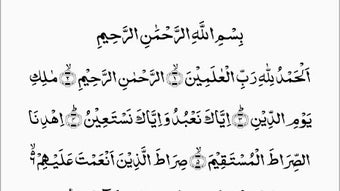 بِسْمِ اللَّهِ الرَّحْمٰنِ الرَّحِيمِ
اَلْحَمْدُ لِلّٰهِ رَبِّ الْعٰلَمِيْنَ ۝١ الرَّحْمٰنِ الرَّحِيْمِ ۝٢ مٰلِكِ
يَوْمِ الدِّيْنِ ۝٣ اِيَّاكَ نَعْبُدُ وَاِيَّاكَ نَسْتَعِيْنُ ۝٤ اِهْدِنَا
الصِّرَاطَ الْمُسْتَقِيْمَ ۝٥ صِرَاطَ الَّذِيْنَ اَنْعَمْتَ عَلَيْهِمْ ۝٦